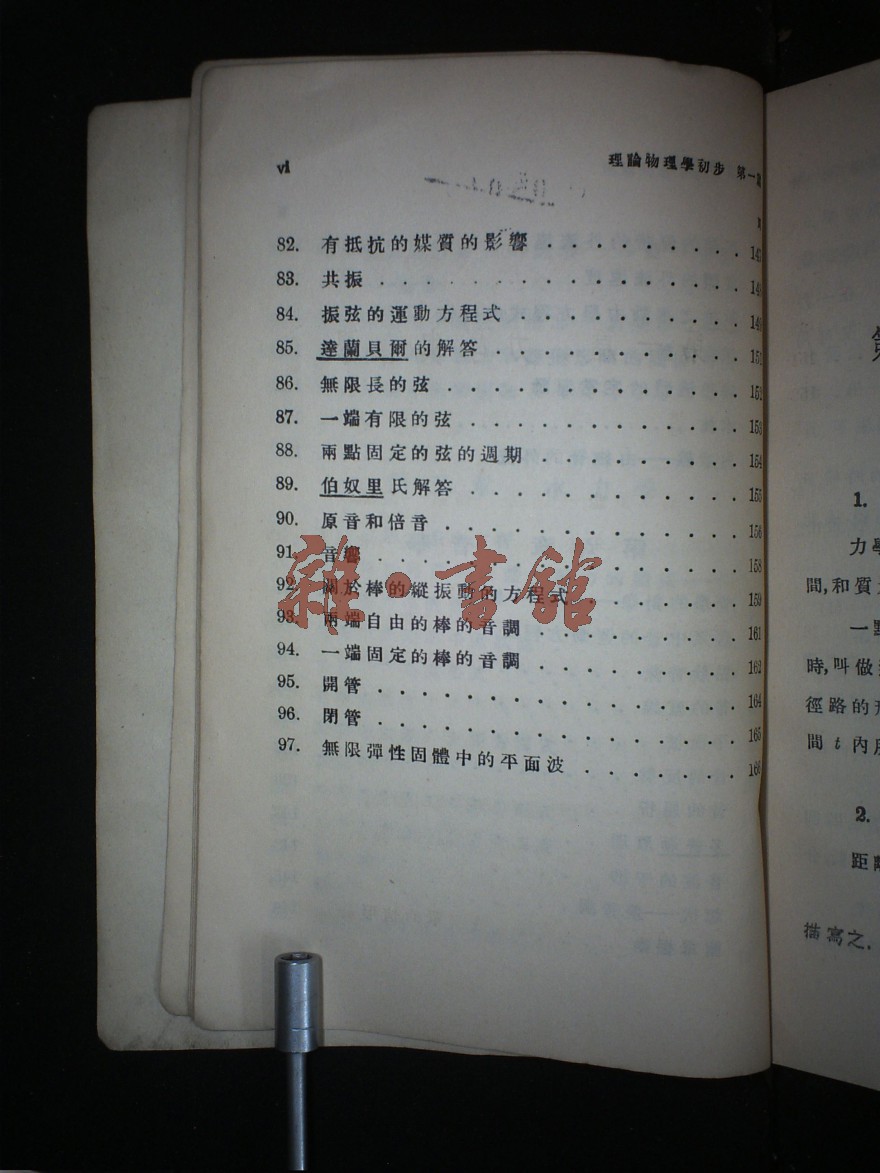 vi 理論物理學初步 第一
82. 有抵抗的媒質的影響 . . . . . . . . . 147
83. 共振 . . . . . . . . . . . . . . . . 148
84. 振弦的運動方程式 . . . . . . . . . . 149
85. 達蘭貝爾的解答 . . . . . . . . . . . 151
86. 無限長的弦 . . . . . . . . . . . . . 152
87. 一端有限的弦 . . . . . . . . . . . . 153
88. 兩點固定的弦的週期 . . . . . . . . . 154
89. 伯奴里氏解答 . . . . . . . . . . . . 155
90. 原音和倍音 . . . . . . . . . . . . . 156
91. 音響 . . . . . . . . . . . . . . . . 158
92. 關於棒的縱振動的方程式 . . . . . . . 159
93. 兩端自由的棒的音調 . . . . . . . . . 161
94. 一端固定的棒的音調 . . . . . . . . . 162
95. 開管 . . . . . . . . . . . . . . . . 164
96. 閉管 . . . . . . . . . . . . . . . . 165
97. 無限彈性固體中的平面波 . . . . . . . 166
雜·書館
1.
力學
間,和質
一
時,叫做
徑路的
間 t 內
2.
距
描寫之.